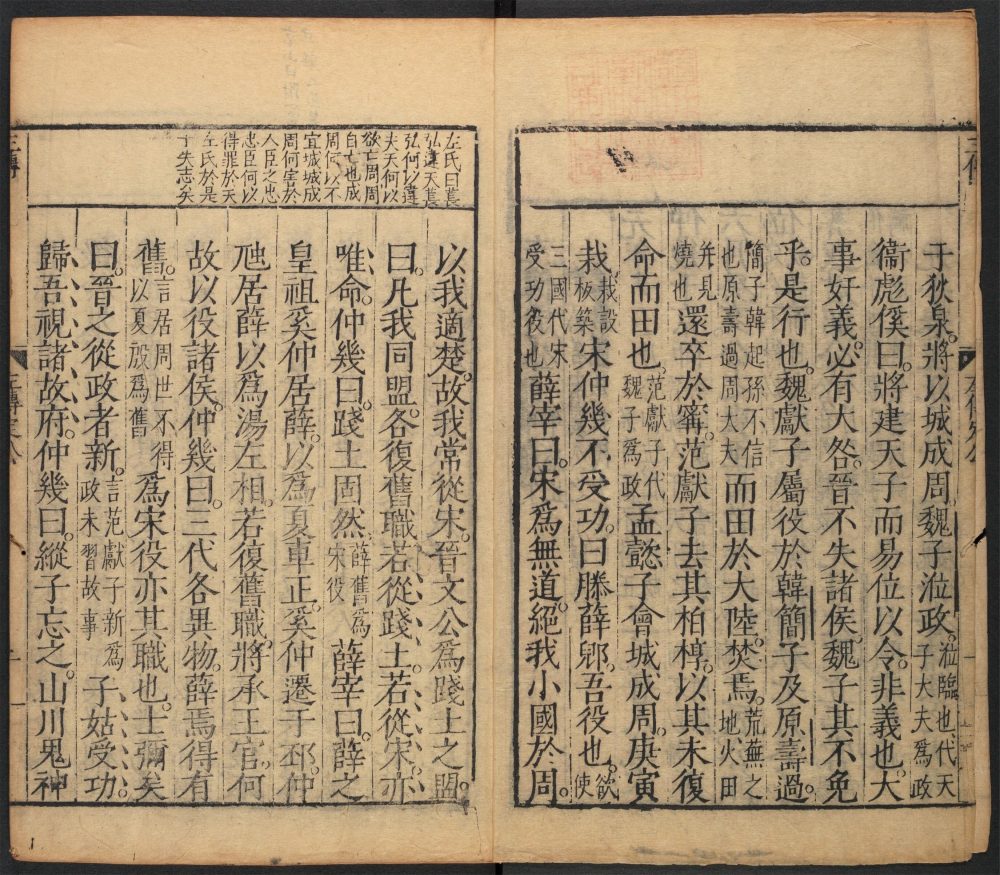 于狄泉。將以城成周。魏子涖政。涖臨也代天子大夫爲政
衞彪傒曰。將建天子而易位以令。非義也。大
事奸義。必有大咎。晉不失諸侯。魏子其不免
乎。是行也。魏獻子屬役於韓簡子及原壽過。
簡子韓起孫不信也原壽過周大夫而田於大陸。焚焉。荒蕪之地火田
并見燒也還卒於甯。范獻子去其柏椁。以其未復
命而田也。范獻子代魏子爲政孟懿子會城成周。庚寅
栽。栽設板築宋仲幾不受功。曰滕薛郳。吾役也。欲使
三國代宋受功役也薛宰曰。宋爲無道。絕我小國於周。
左氏曰萇
弘違天萇
弘何以違
夫天何以
欲亡周周
自亡也成
周何以不
宜城城成
周何害於
人臣之忠
忠臣何以
得罪於天
左氏於是
乎失志矣
以我適楚。故我常從宋。晉文公爲踐土之盟。
曰。凡我同盟。各復舊職。若從踐土。若從宋。亦
唯命。仲幾曰。踐土固然。薛舊爲宋役薛宰曰。薛之
皇祖奚仲居薛。以爲夏車正。奚仲遷于邳。仲
虺居薛。以爲湯左相。若復舊職。將承王官。何
故以役諸侯。仲幾曰。三代各異物。薛焉得有
舊。言居周世不得以夏殷爲舊爲宋役亦其職也。士彌矣
曰。晉之從政者新。言范獻子新爲政未習故事子姑受功。
歸吾視諸故府。仲幾曰。縱子忘之。山川鬼神